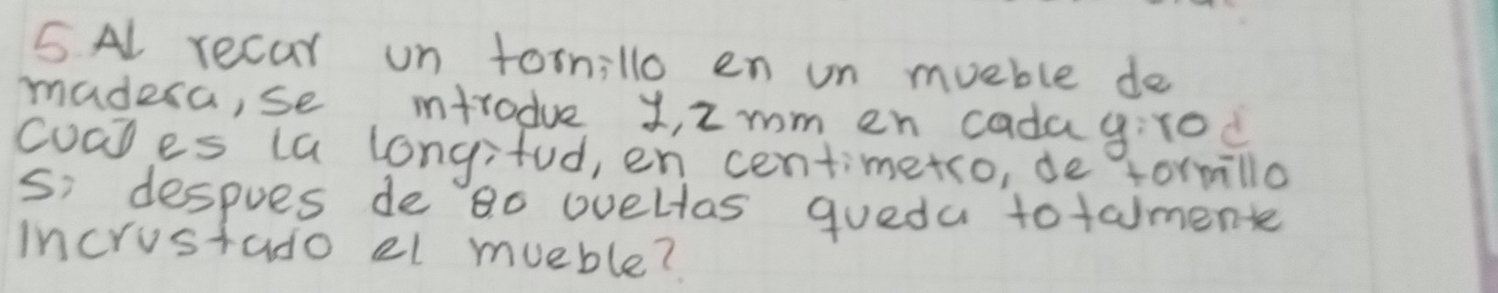 5. Al recar un tornillo en un mueble de
madera, se introdue 1,2 mm en cada giro ¿
cual es la longitud, en centimetro, de tornillo
si despues de 80 vueltas queda totalmente
incrustado el mueble?